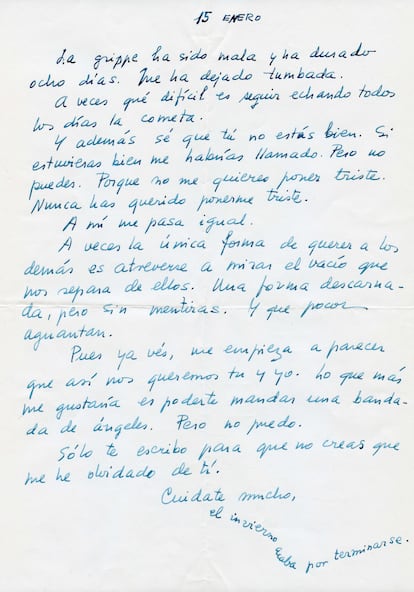 15 ENERO
La grippe ha sido mala y ha durado
ocho días. Me ha dejado tumbada.
A veces qué difícil es seguir echando todos
los días la cometa.
Y además sé que tú no estás bien. Si
estuvieras bien me habrías llamado. Pero no
puedes. Porque no me quieres poner triste.
Nunca has querido ponerme triste.
A mí me pasa igual.
A veces la única forma de querer a los
demás es atreverse a mirar el vacío que
nos separa de ellos. Una forma descarna-
da, pero sin mentiras. Y que pocos
aguantan.
Pues ya vés, me empieza a parecer
que así nos queremos tu y yo. Lo que más
me gustaría es poderte mandar una banda-
da de ángeles. Pero no puedo.
Sólo te escribo para que no creas que
me he olvidado de tí.
Cuidate mucho,
el invierno
acaba por terminarse.